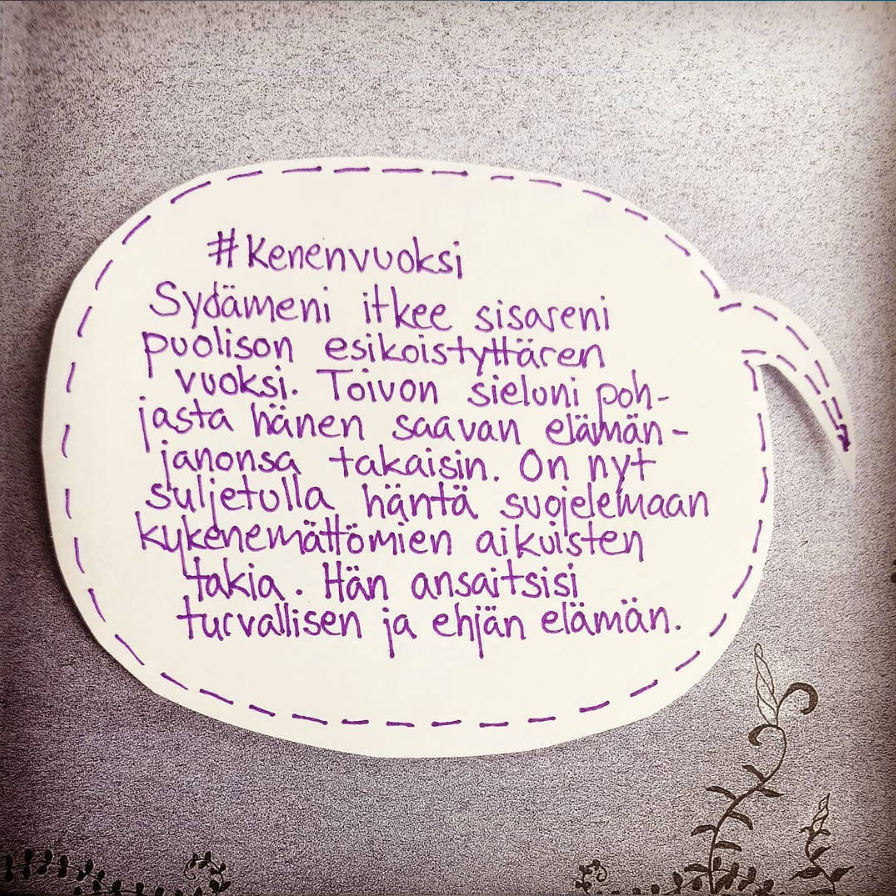 #Kenenvuoksi
Sydämeni itkee sisareni
puolison esikoistyttären
vuoksi. Toivon sieluni poh-
jasta hänen saavan elämän-
janonsa takaisin. On nyt
suljetulla häntä suojelemaan
kykenemättömien aikuisten
takia. Hän ansaitsisi
turvallisen ja ehjän elämän.